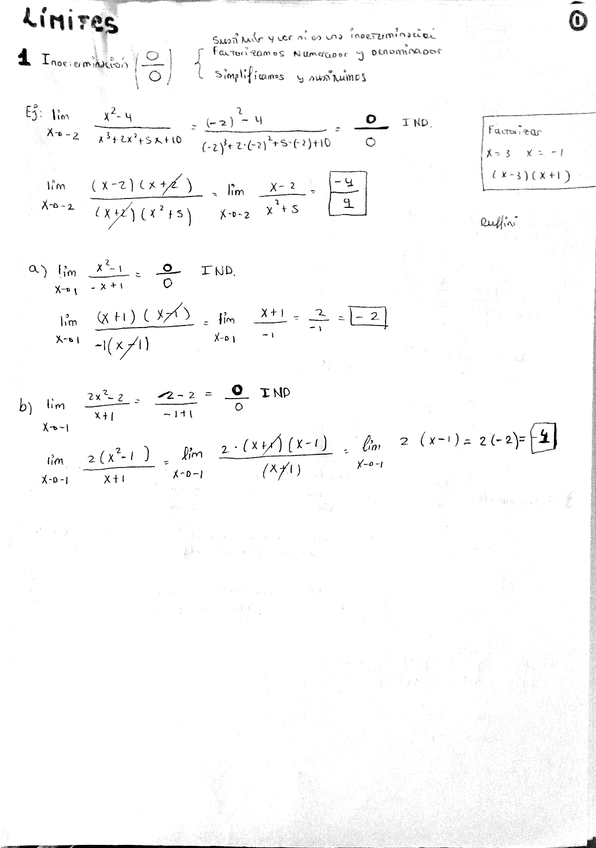 LÍMITES
1
1 Indeterminación (0/0) { Sustituir y ver si es una indeterminación
Factorizamos Numerador y denominador
Simplificamos y sustituimos
Ej: lim x→-2 (x²-4)/(x³+2x²+5x+10) = ((-2)²-4)/((-2)³+2·(-2)²+5·(-2)+10) = 0/0 IND.
Factorizar
x=3 x=-1
(x-3)(x+1)
lim x→-2 ((x-2)(x+2))/((x+2)(x²+5)) = lim x→-2 (x-2)/(x²+5) = -4/9
Ruffini
a) lim x→1 (x²-1)/(-x+1) = 0/0 IND.
lim x→1 ((x+1)(x-1))/(-1(x-1)) = lim x→1 (x+1)/-1 = 2/-1 = -2
b) lim x→-1 (2x²-2)/(x+1) = (2-2)/(-1+1) = 0/0 IND
lim x→-1 (2(x²-1))/(x+1) = lim x→-1 (2·(x+1)(x-1))/((x+1)) = lim x→-1 2(x-1) = 2(-2) = -4